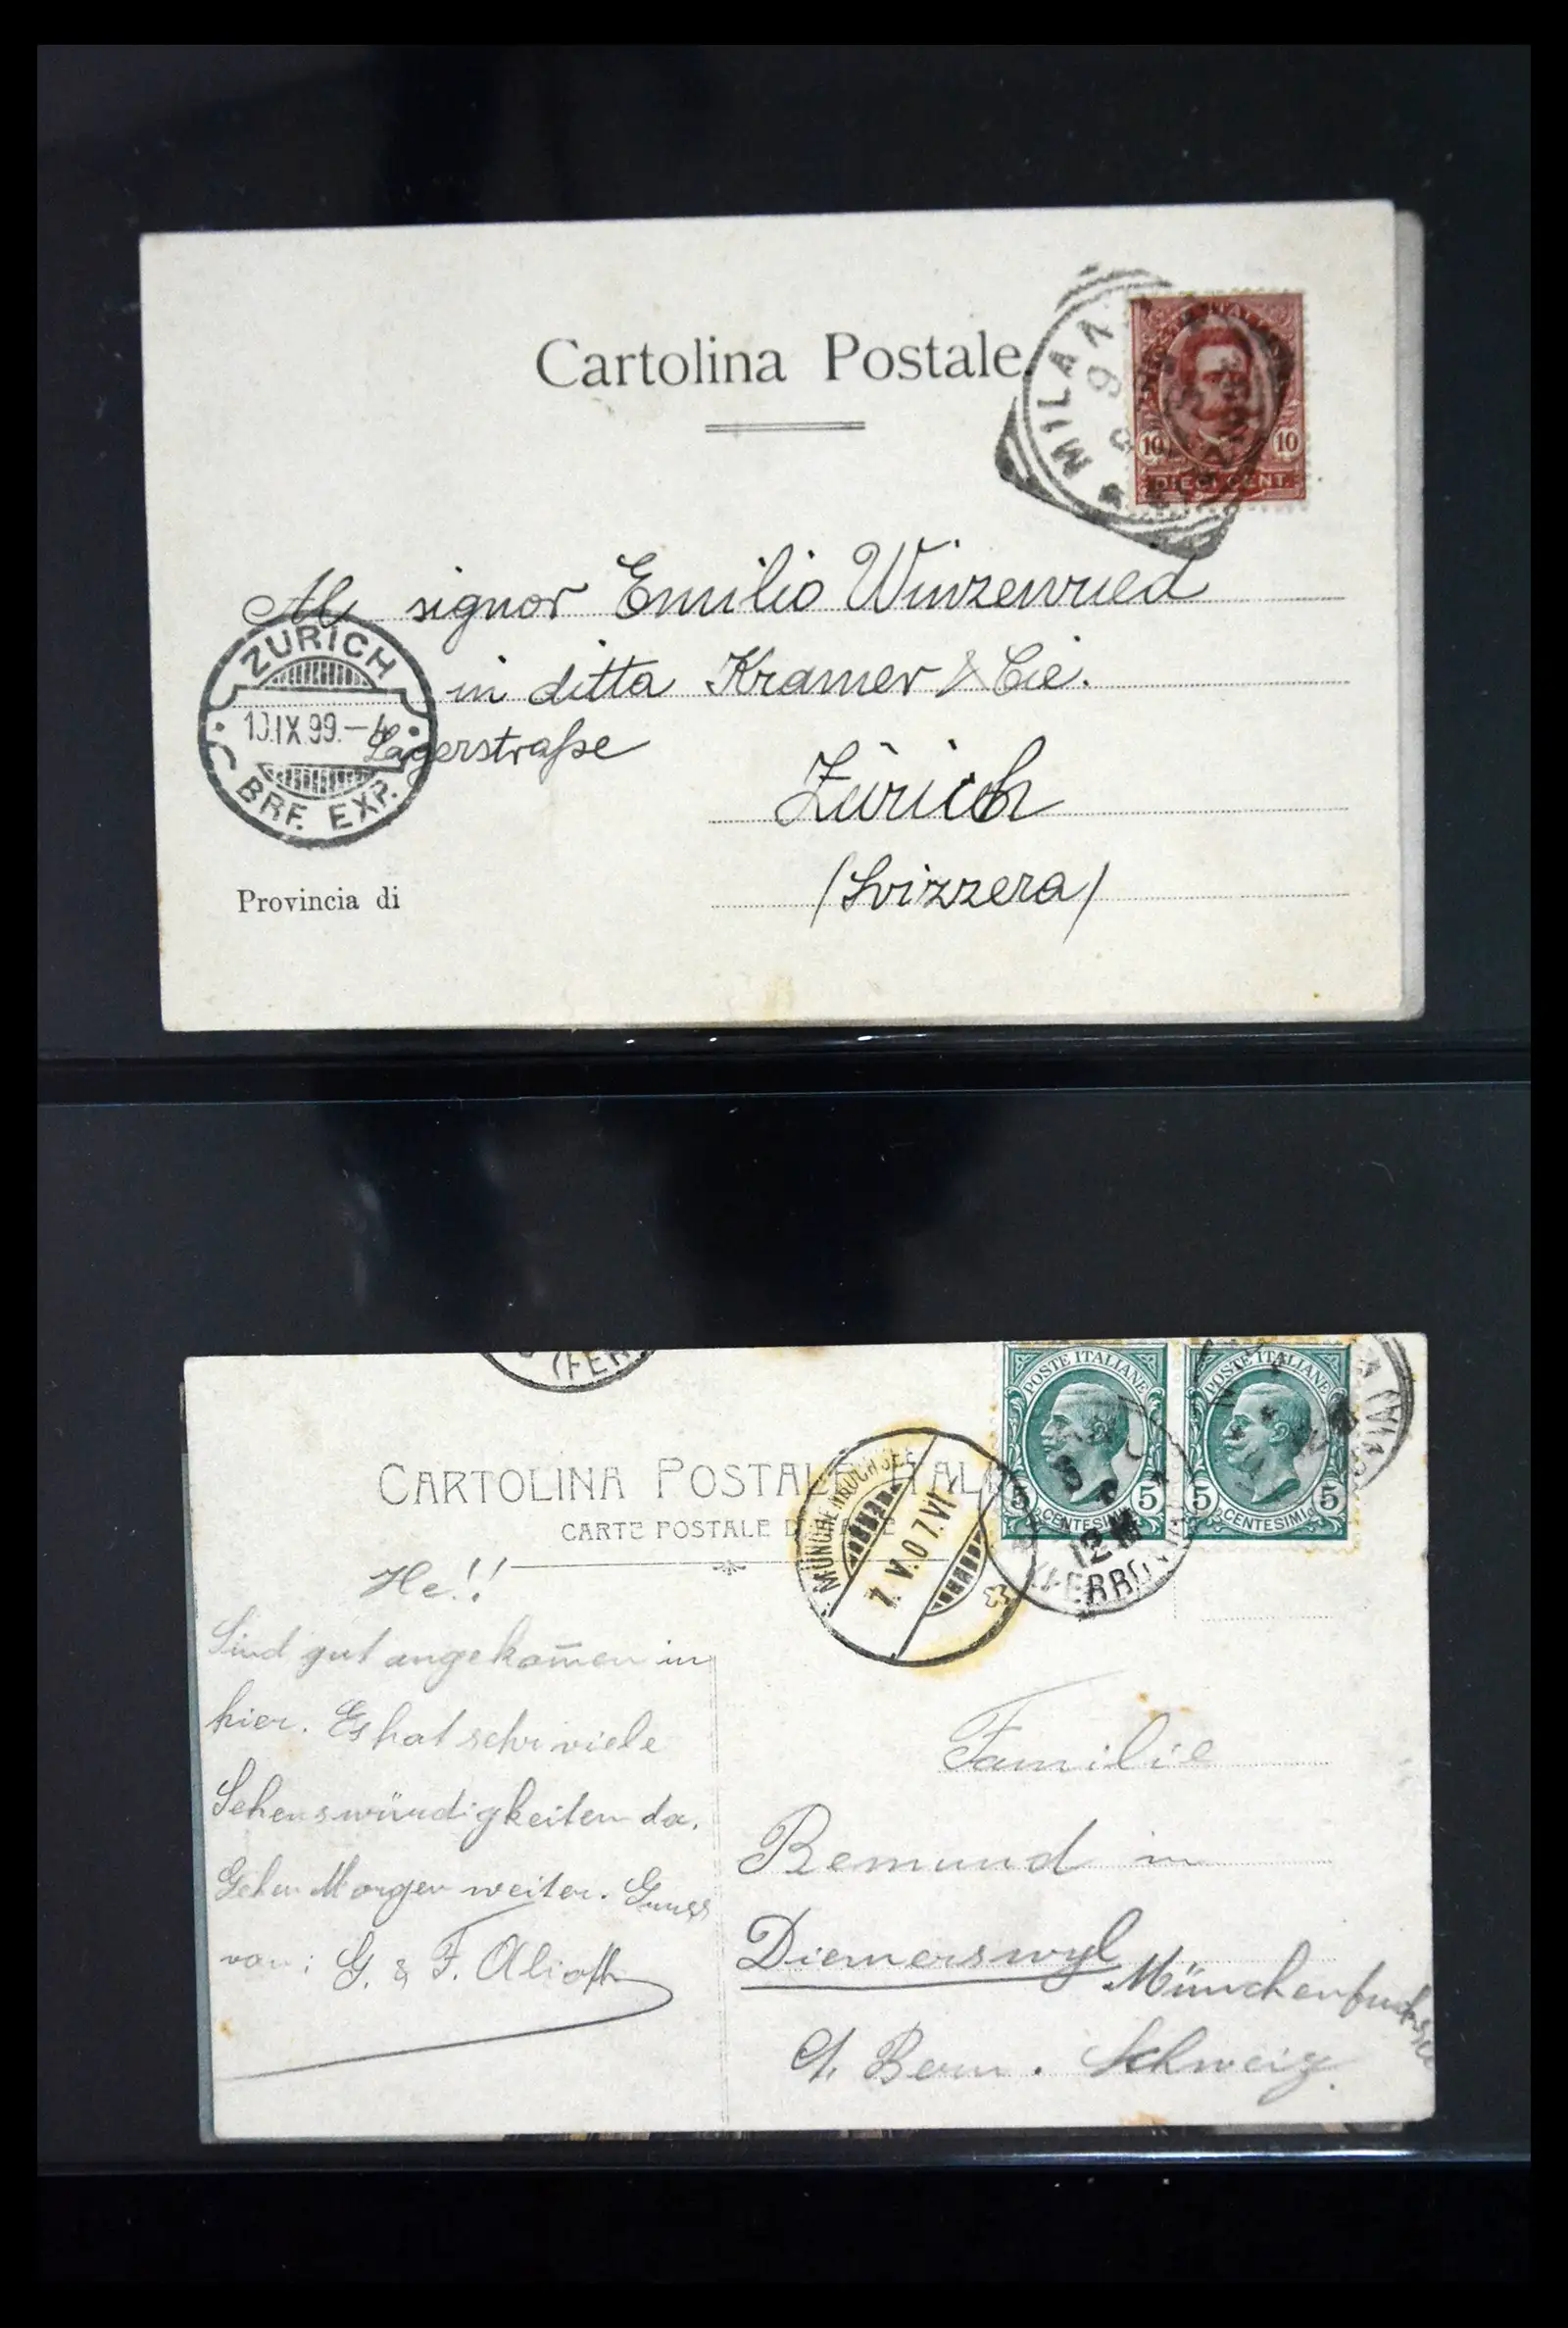 Cartolina Postale.
MILA
10 10
DIECI CENT.
Al signor Emilio Winzenried
in ditta Kramer & Cie.
Lagerstraße
Zürich
(Svizzera)
ZURICH
10.IX.99.–4
BRF. EXP.
Provincia di
(FER
POSTE ITALIANE
5 5
CENTESIMI
POSTE ITALIANE
5 5
CENTESIMI
12
(FERRO
CARTOLINA POSTALE ITAL
CARTE POSTALE D
MÜNCHENBUCHSEE
7.V.07.VI
He!!
Sind gut angekom̄en in
hier. Es hat sehr viele
Sehenswürdigkeiten da.
Gehen Morgen weiter. Gruss
von: G. & F. Alioth
Familie
Remund in
Diemerswyl Münchenbuchsee
Ct. Bern. Schweiz.